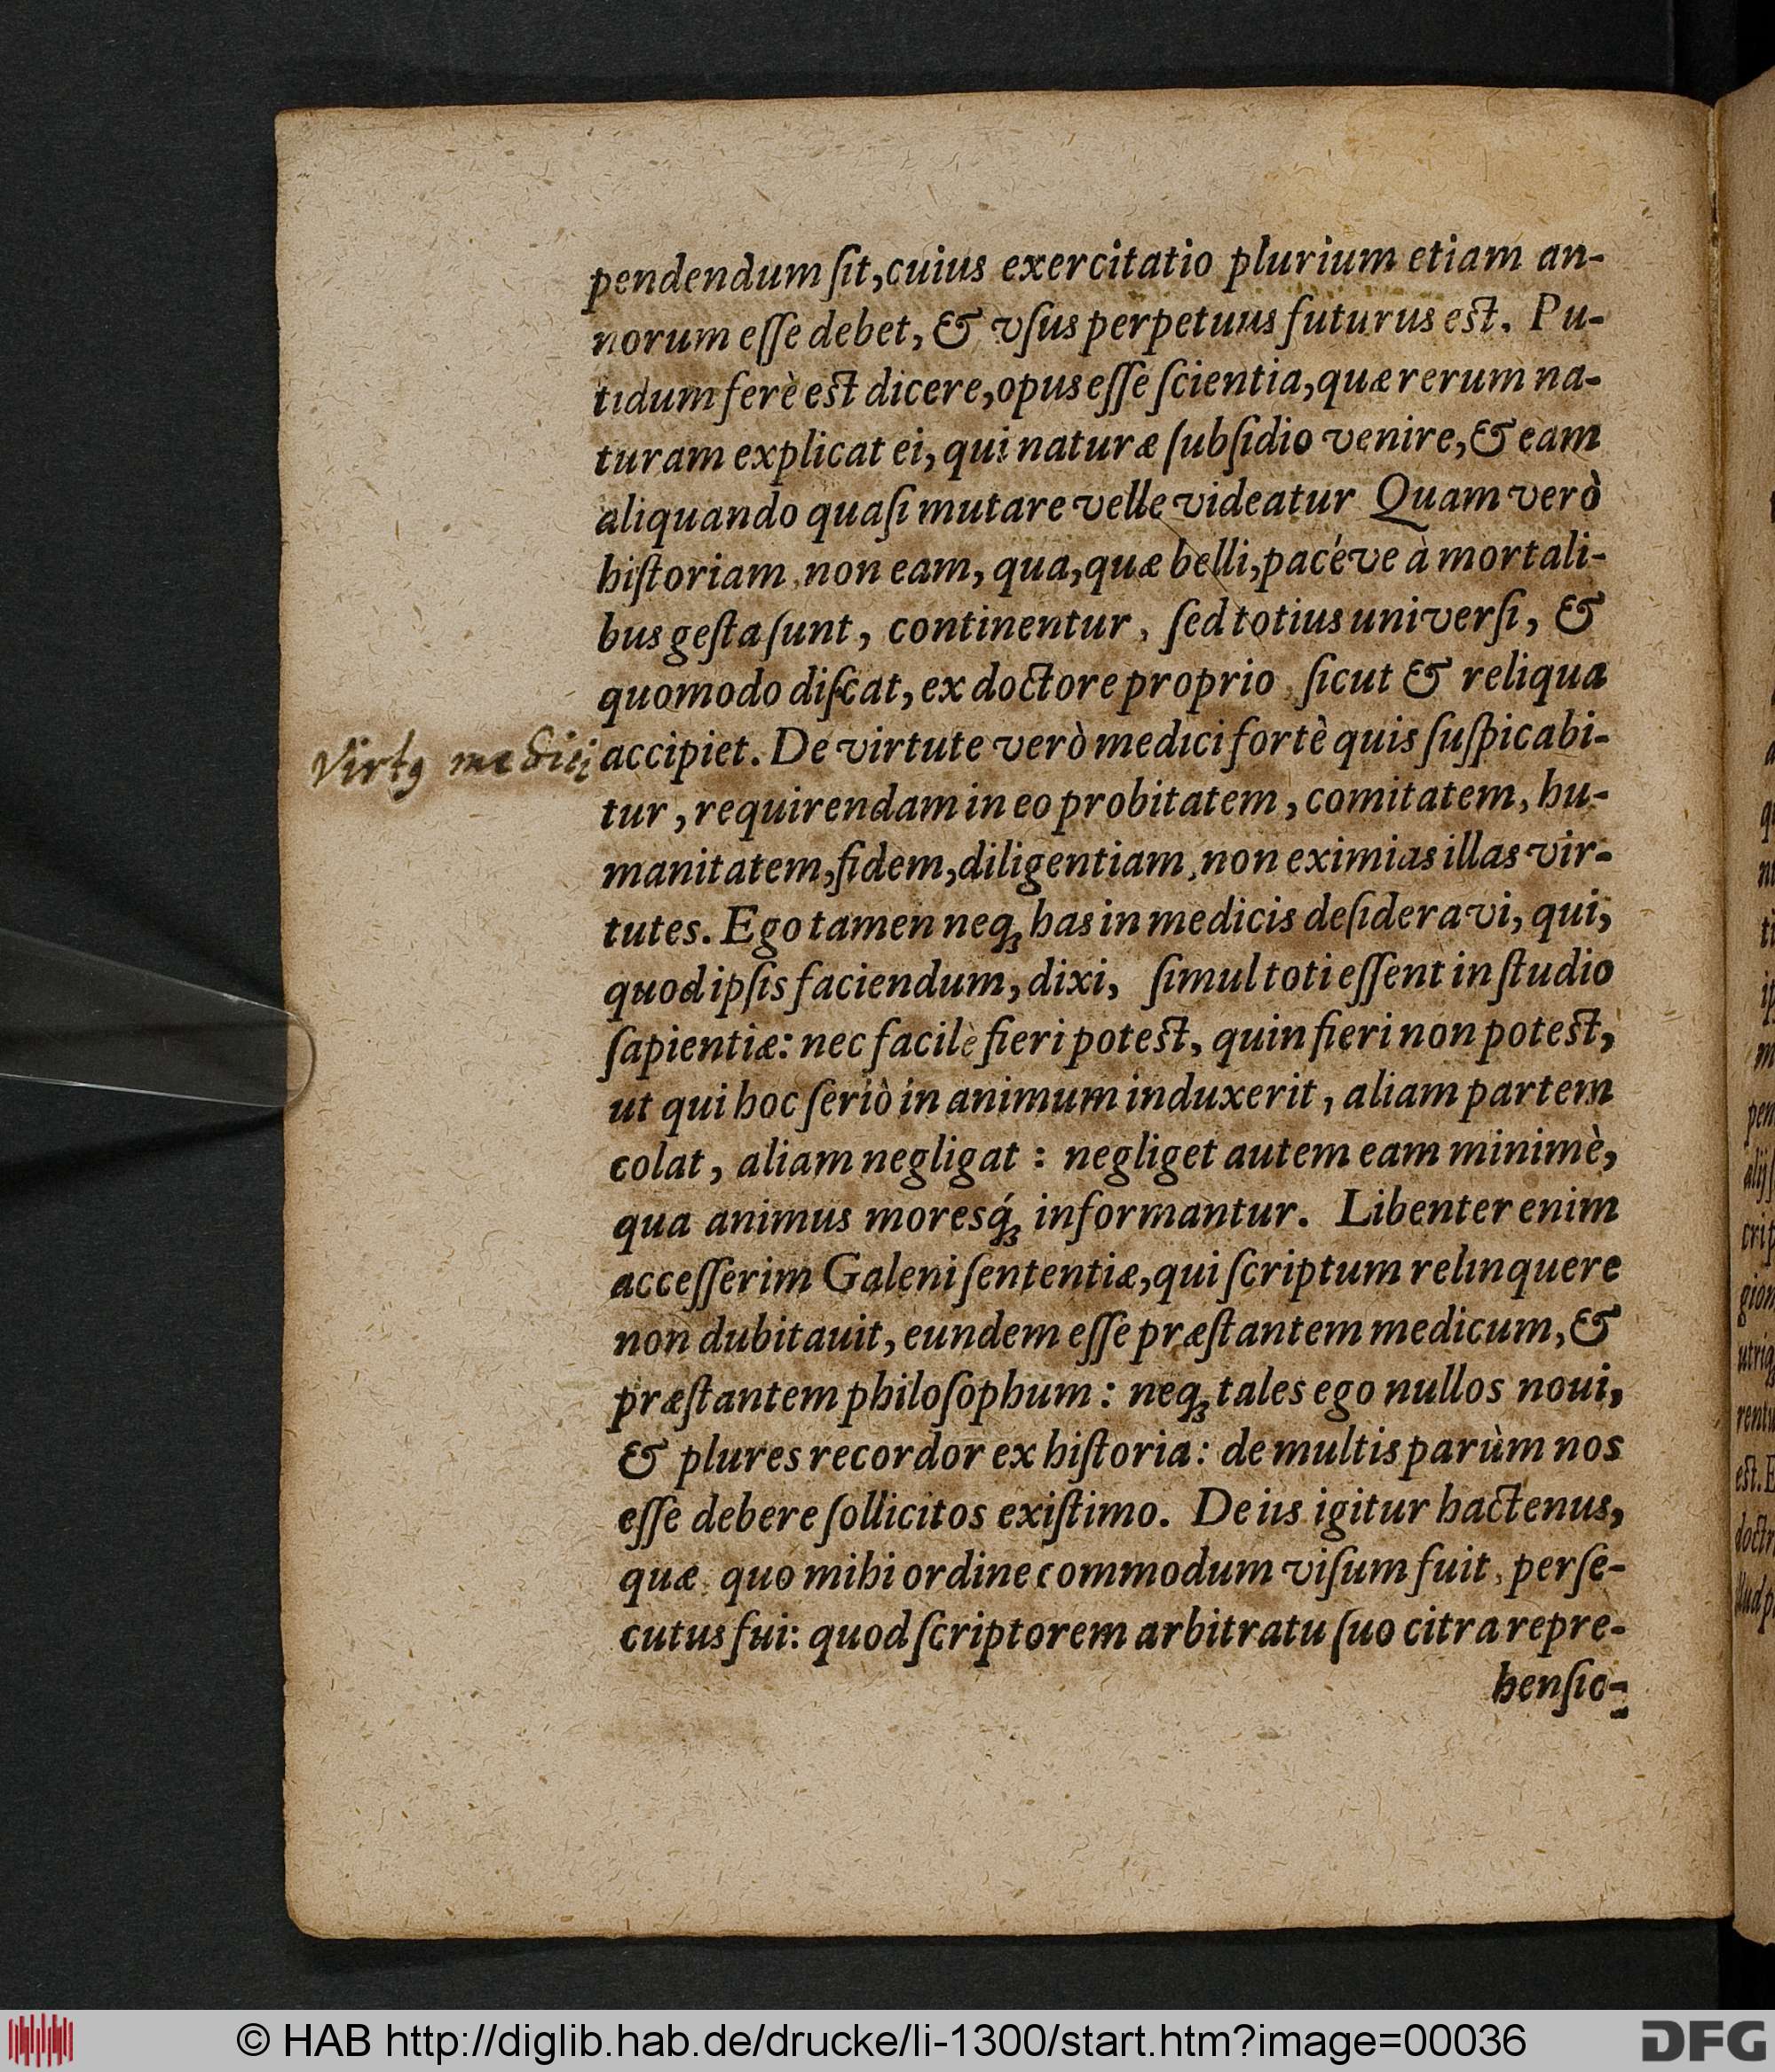 pendendum ſit, cuius exercitatio plurium etiam an-
norum eſſe debet, & vſus perpetuus futurus est. Pu-
tidum ferè est dicere, opus eſſe ſcientia, quæ rerum na-
turam explicat ei, qui naturæ ſubſidio venire, & eam
aliquando quaſi mutare velle videatur Quam verò
hiſtoriam, non eam, qua, quæ belli, pacéve à mortali-
bus geſta ſunt, continentur, ſed totius univerſi, &
quomodo diſcat, ex doctore proprio, ſicut & reliqua
Virtꝰ medici
accipiet. De virtute verò medici fortè quis ſuſpicabi-
tur, requirendam in eo probitatem, comitatem, hu-
manitatem, fidem, diligentiam, non eximias illas vir-
tutes. Ego tamen neq; has in medicis deſideravi, qui,
quod ipſis faciendum, dixi, ſimul toti eſſent in ſtudio
ſapientiæ: nec facilè fieri potest, quin fieri non potest,
ut qui hoc ſeriò in animum induxerit, aliam partem
colat, aliam negligat: negliget autem eam minimè,
qua animus moresq́; informantur. Libenter enim
acceſſerim Galeni ſententiæ, qui ſcriptum relinquere
non dubitauit, eundem eſſe præſtantem medicum, &
præſtantem philoſophum: neq; tales ego nullos noui,
& plures recordor ex hiſtoria: de multis parùm nos
eſſe debere ſollicitos exiſtimo. De iis igitur hactenus,
quæ, quo mihi ordine commodum viſum fuit, perſe-
cutus fui: quod ſcriptorem arbitratu ſuo citra repre-
henſio-
© HAB http://diglib.hab.de/drucke/li-1300/start.htm?image=00036
DFG